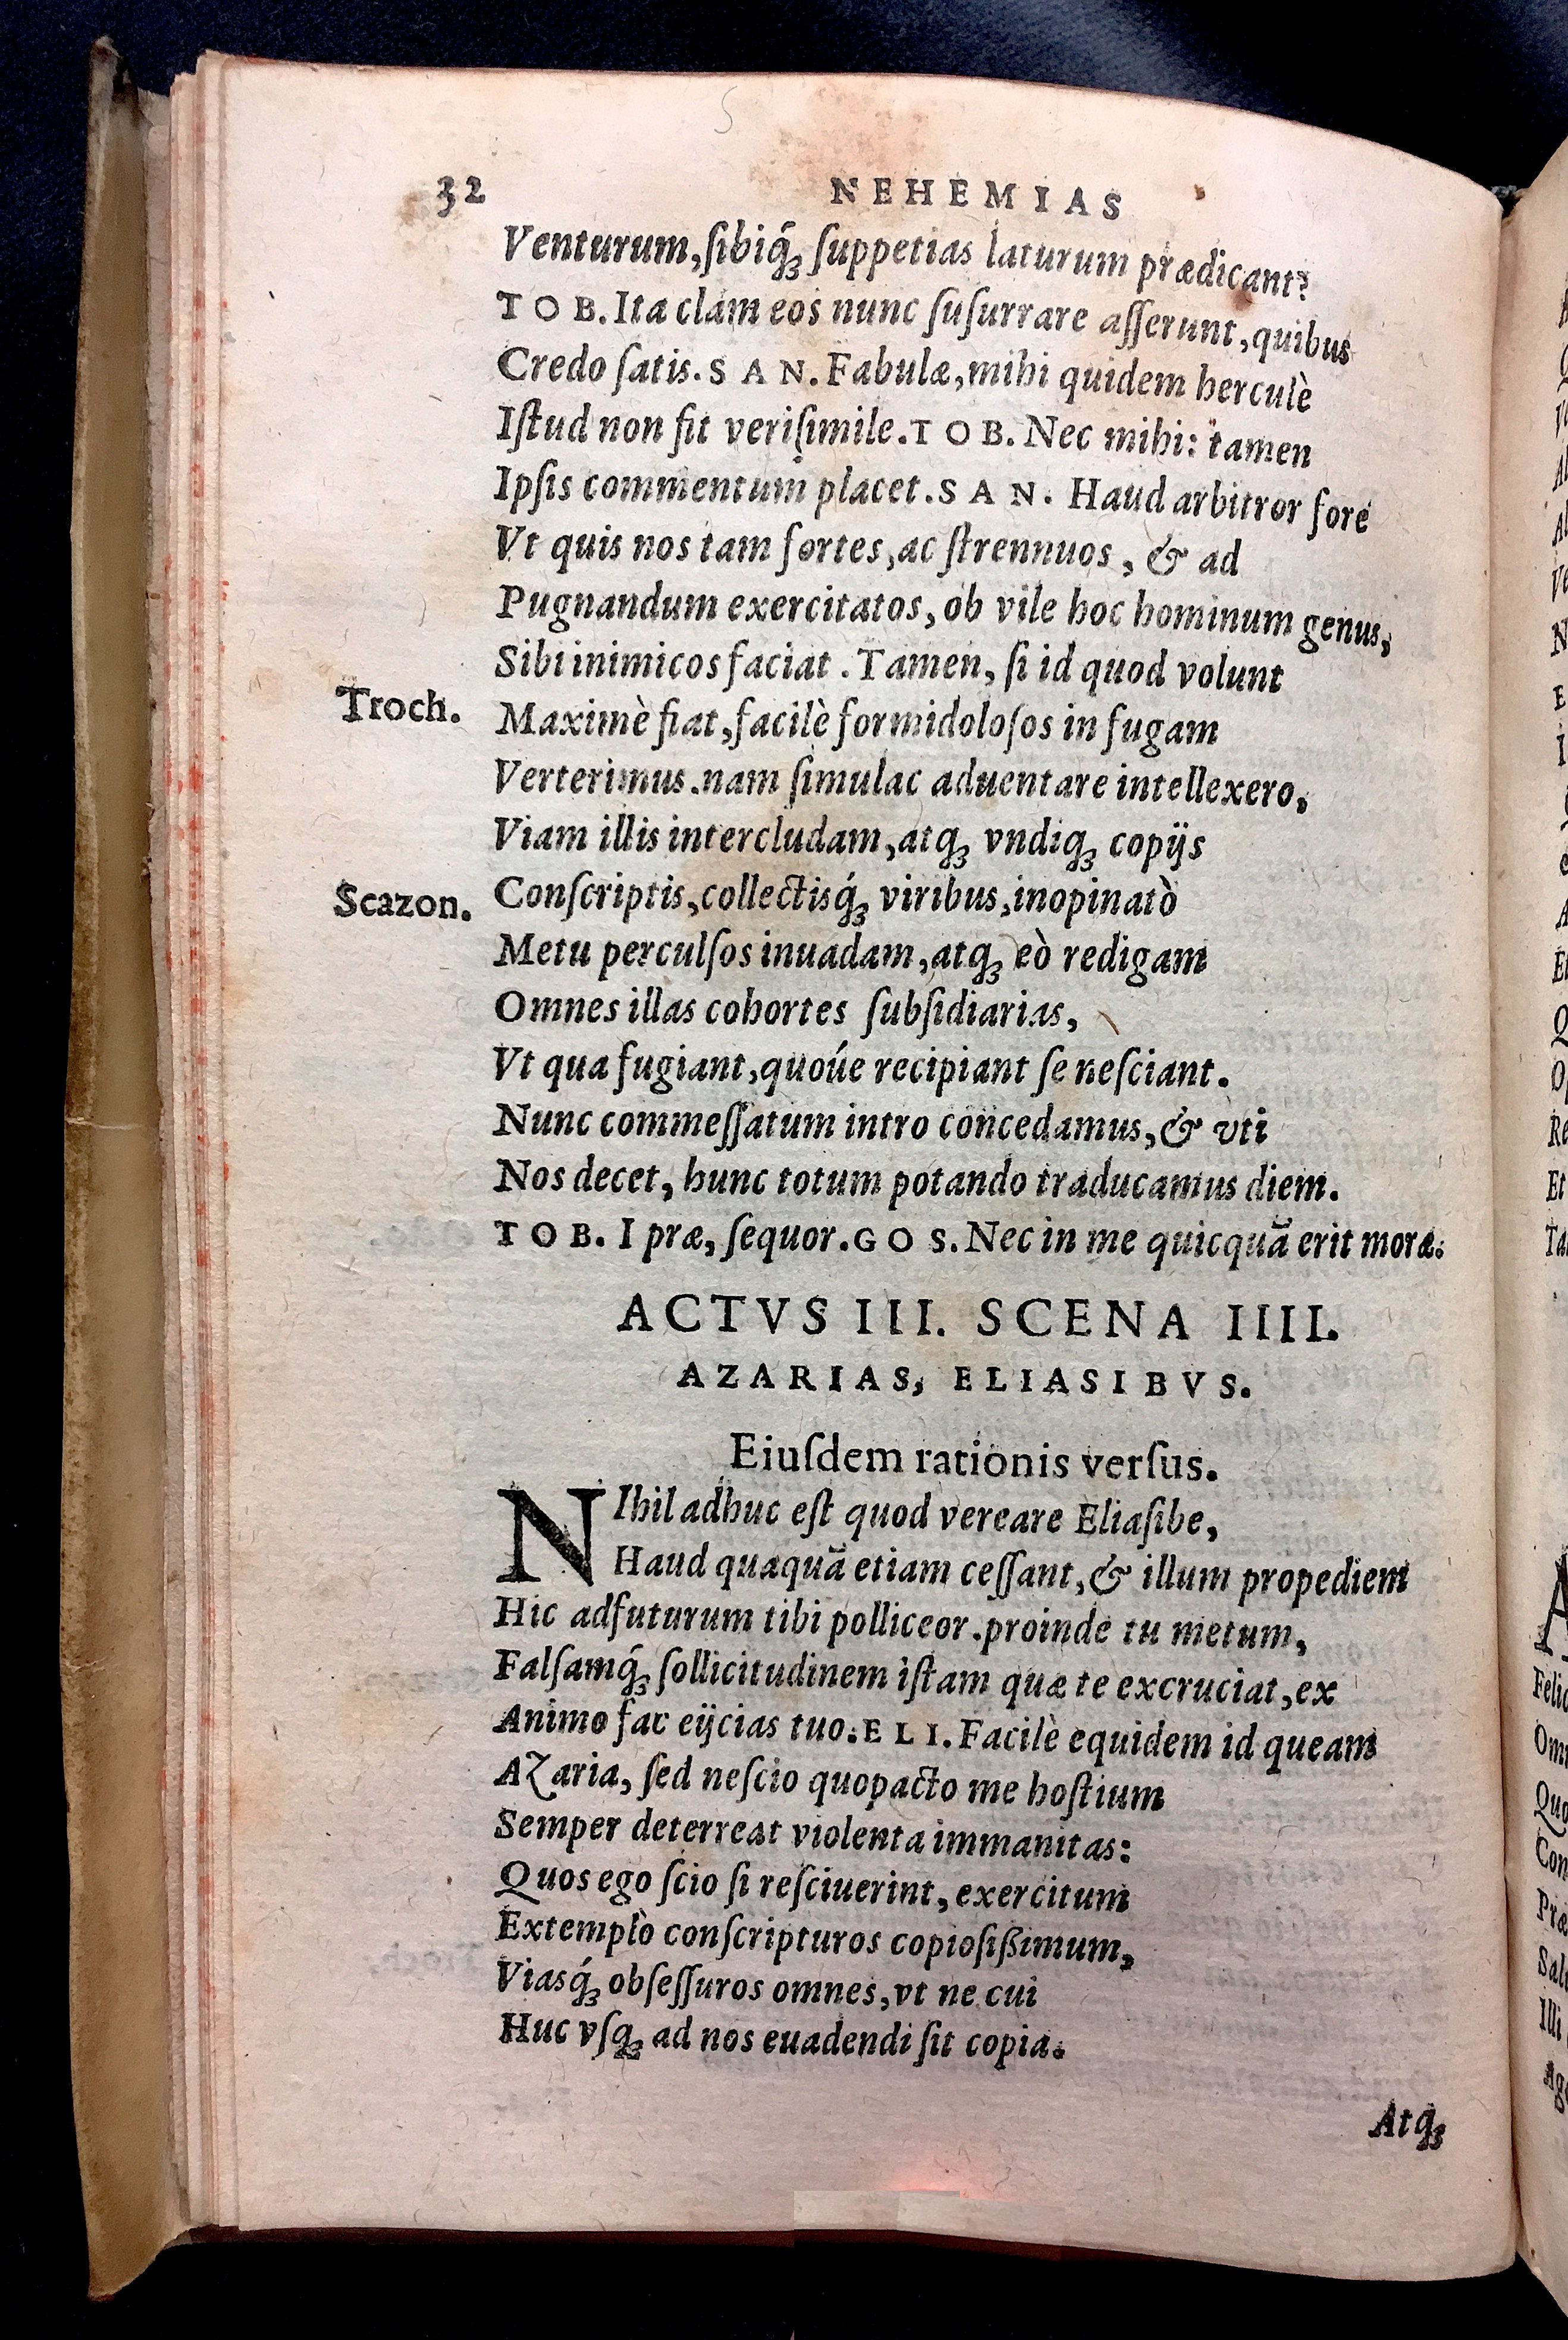 32 NEHEMIAS
Venturum,ſibiq́ꝫ ſuppetias laturum prædicant?
TOB. Ita clam eos nunc ſuſurrare aſſerunt,quibus
Credo ſatis. SAN. Fabulæ,mihi quidem herculè
Iſtud non fit veriſimile. TOB. Nec mihi: tamen
Ipſis commentum placet. SAN. Haud arbitror fore
Vt quis nos tam fortes,ac ſtrennuos, & ad
Pugnandum exercitatos, ob vile hoc hominum genus,
Sibi inimicos faciat. Tamen, ſi id quod volunt
Troch. Maximè fiat,facilè formidoloſos in fugam
Verterimus.nam ſimulac aduentare intellexero,
Viam illis intercludam,atqꝫ vndiqꝫ copijs
Scazon. Conſcriptis,collectisq́ꝫ viribus,inopinatò
Metu perculſos inuadam,atqꝫ eò redigam
Omnes illas cohortes ſubſidiarias,
Vt qua fugiant,quoúe recipiant ſe neſciant.
Nunc commeſſatum intro concedamus,& vti
Nos decet, hunc totum potando traducamus diem.
TOB. I præ, ſequor. GOS. Nec in me quicquã erit moræ.
ACTVS III. SCENA IIII.
AZARIAS, ELIASIBVS.
Eiuſdem rationis verſus.
NIhil adhuc eſt quod vereare Eliaſibe,
Haud quaquã etiam ceſſant,& illum propediem
Hic adfuturum tibi polliceor.proinde tu metum,
Falſamq́ꝫ ſollicitudinem iſtam quæ te excruciat,ex
Animo fac eijcias tuo. ELI. Facilè equidem id queam
Azaria, ſed neſcio quopacto me hoſtium
Semper deterreat violenta immanitas:
Quos ego ſcio ſi reſciuerint, exercitum
Extemplò conſcripturos copioſißimum,
Viasq́ꝫ obſeſſuros omnes,vt ne cui
Huc vſqꝫ ad nos euadendi ſit copia.
Atqꝫ